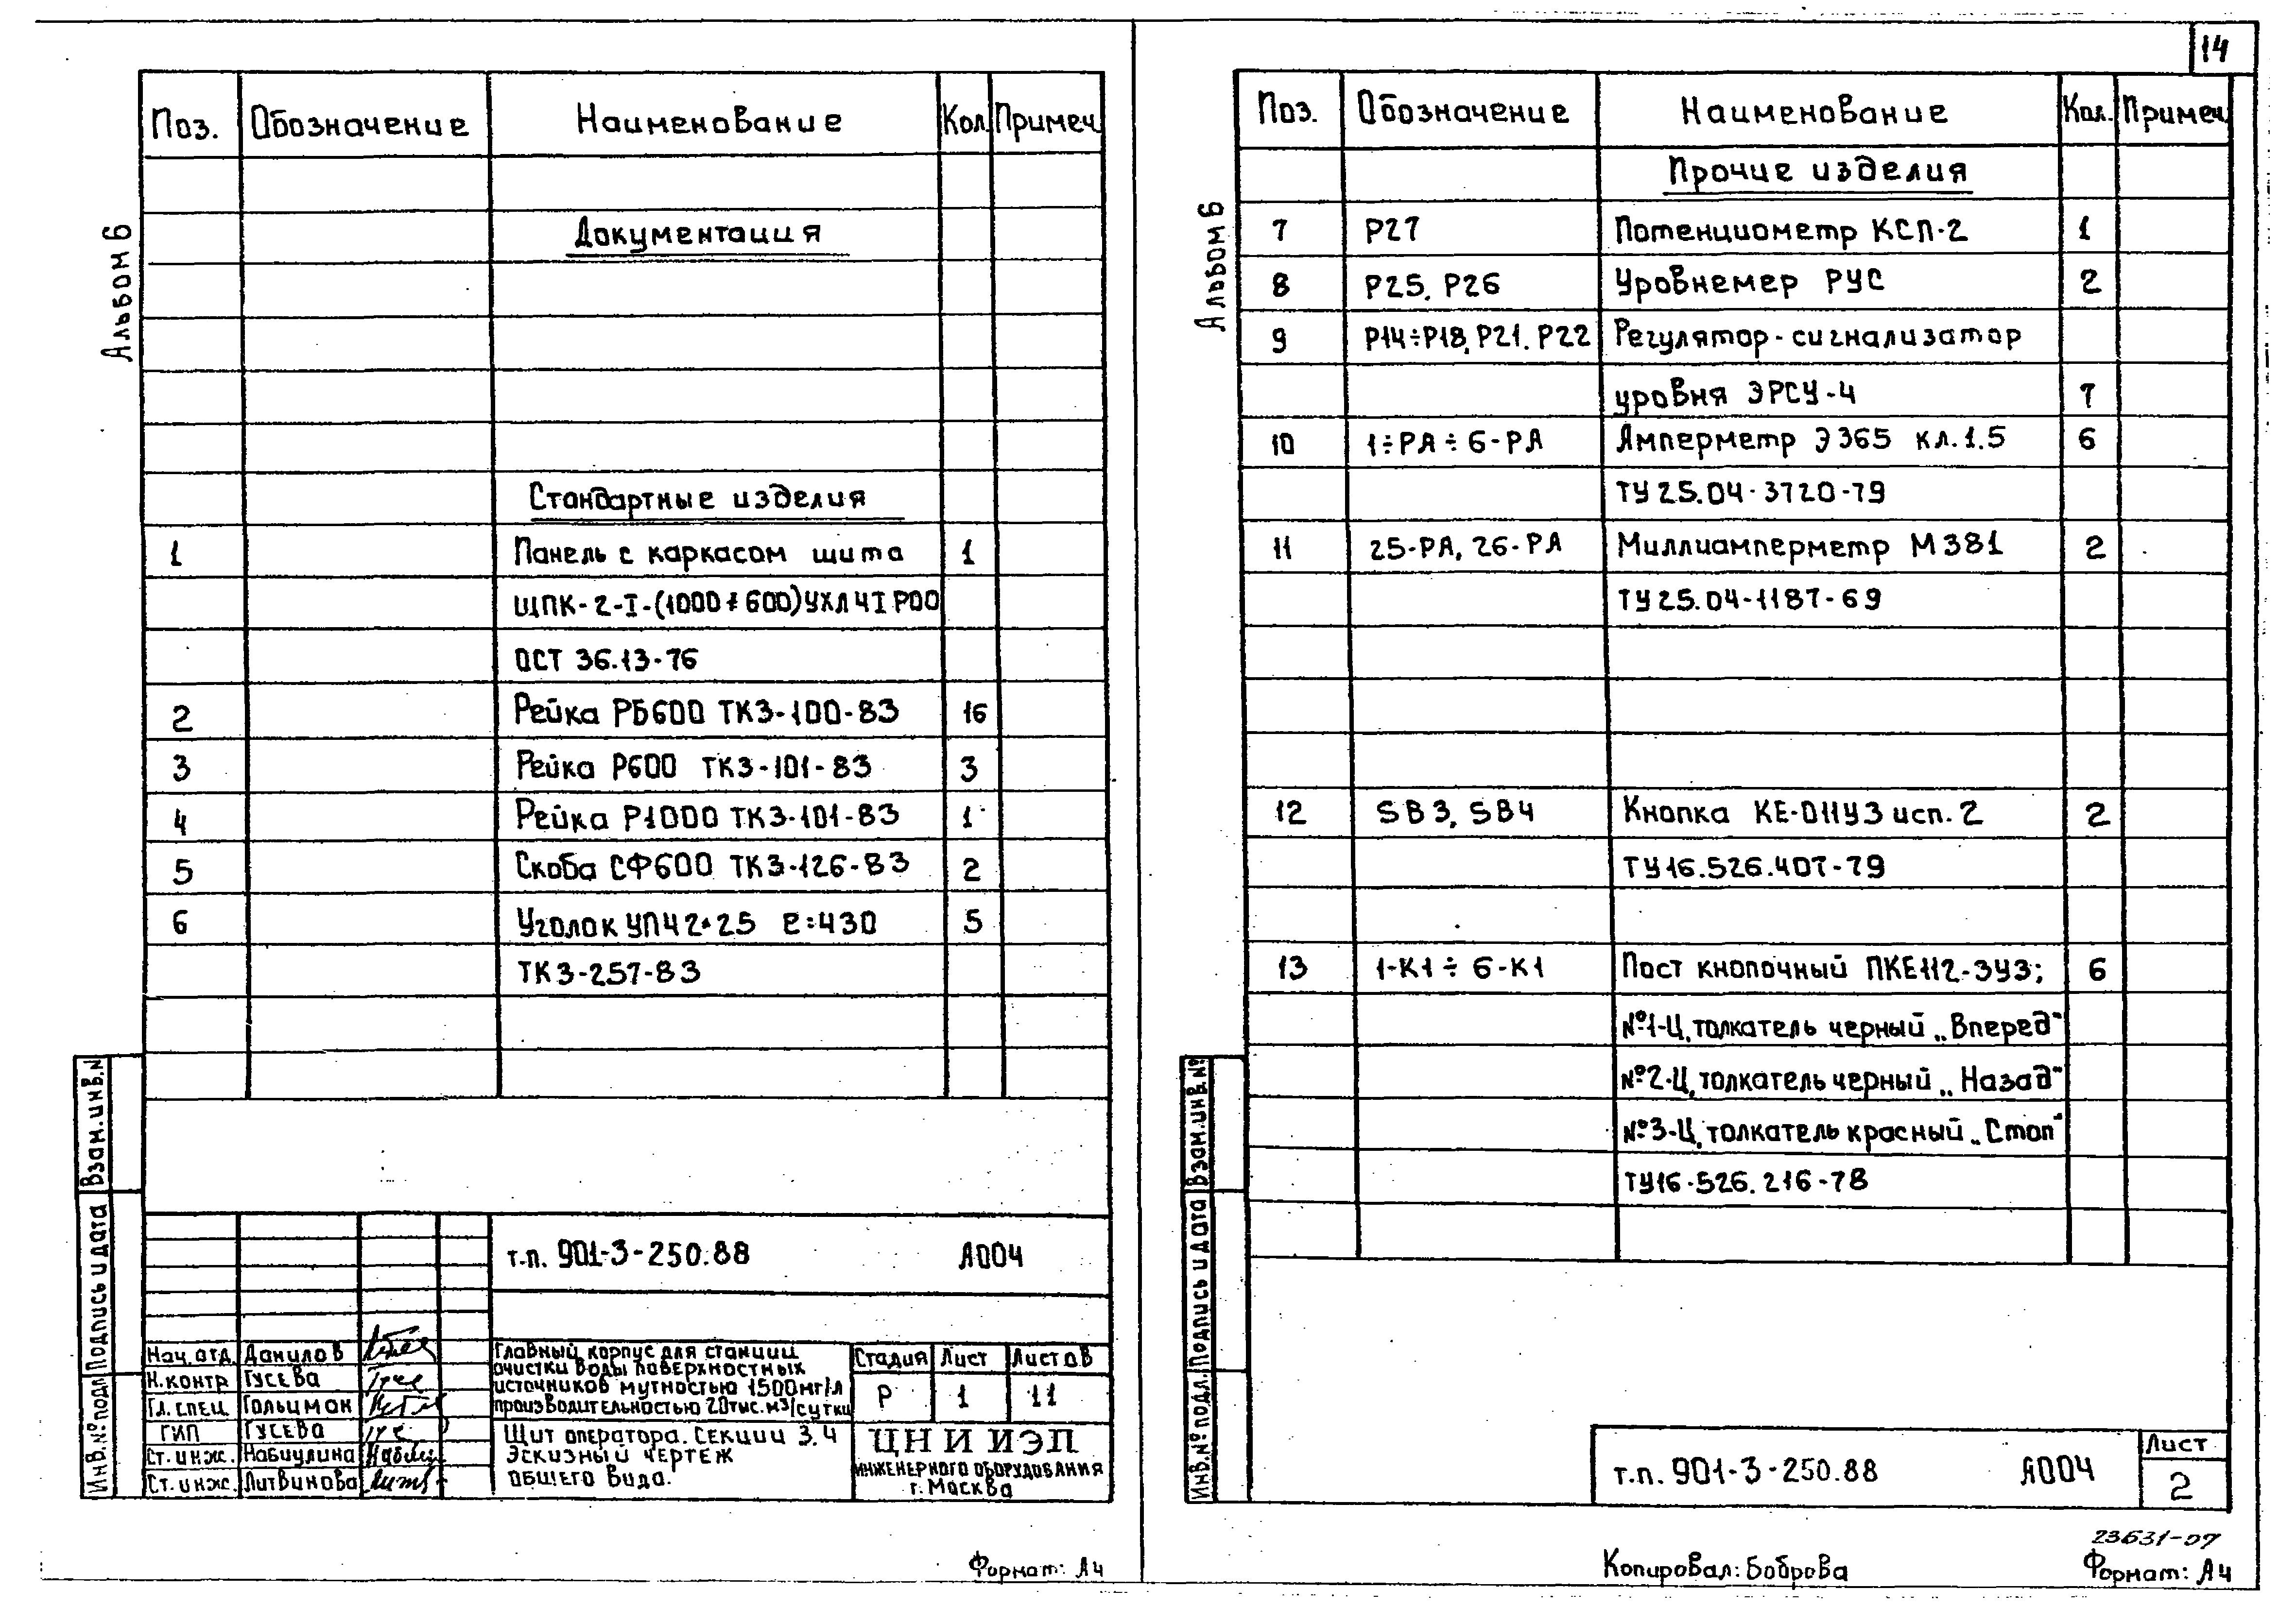 14
Альбом 6
Поз. Обозначение Наименование Кол. Примеч.
Документация
Стандартные изделия
1 Панель с каркасом щита 1
ЩПК-2-I-(1000×600)УХЛ4IР00
ОСТ 36.13-76
2 Рейка РБ600 ТК3-100-83 16
3 Рейка Р600 ТК3-101-83 3
4 Рейка Р1000 ТК3-101-83 1
5 Скоба СФ600 ТК3-126-83 2
6 Уголок УП42×25 ℓ=430 5
ТК3-257-83
Взам.инв.N
Подпись и дата
Инв.№подл
т.п. 901-3-250.88 А004
Нач.отд. Данилов
Н.контр Гусева
Гл. спец. Гольцман
ГИП Гусева
Ст. инж. Набиулина
Ст. инж. Литвинова
Главный корпус для станции
очистки воды поверхностных
источников мутностью 1500мг/л
производительностью 20тыс.м³/сутки
Щит оператора. Секции 3,4
Эскизный чертеж
общего вида.
Стадия Лист Листов
Р 1 11
ЦНИИЭП
инженерного оборудования
г. Москва
Формат: А4
Альбом 6
Поз. Обозначение Наименование Кол. Примеч.
Прочие изделия
7 Р27 Потенциометр КСП-2 1
8 Р25, Р26 Уровнемер РУС 2
9 Р14÷Р18, Р21. Р22 Регулятор-сигнализатор
уровня ЭРСУ-4 7
10 1÷РА÷6-РА Амперметр Э365 кл.1.5 6
ТУ 25.04-3720-79
11 25-РА, 26-РА Миллиамперметр М381 2
ТУ25.04-1187-69
12 SB3, SB4 Кнопка КЕ-011У3 исп. 2 2
ТУ16.526.407-79
13 1-К1÷6-К1 Пост кнопочный ПКЕ112-3У3; 6
№1-Ц, толкатель черный „Вперед"
№2-Ц, толкатель черный „Назад"
№3-Ц, толкатель красный „Стоп"
ТУ16-526.216-78
Взам.инв.№
Подпись и дата
Инв.№ подл.
т.п. 901-3-250.88 А004
Лист
2
23631-07
Копировал: Боброва
Формат: А4